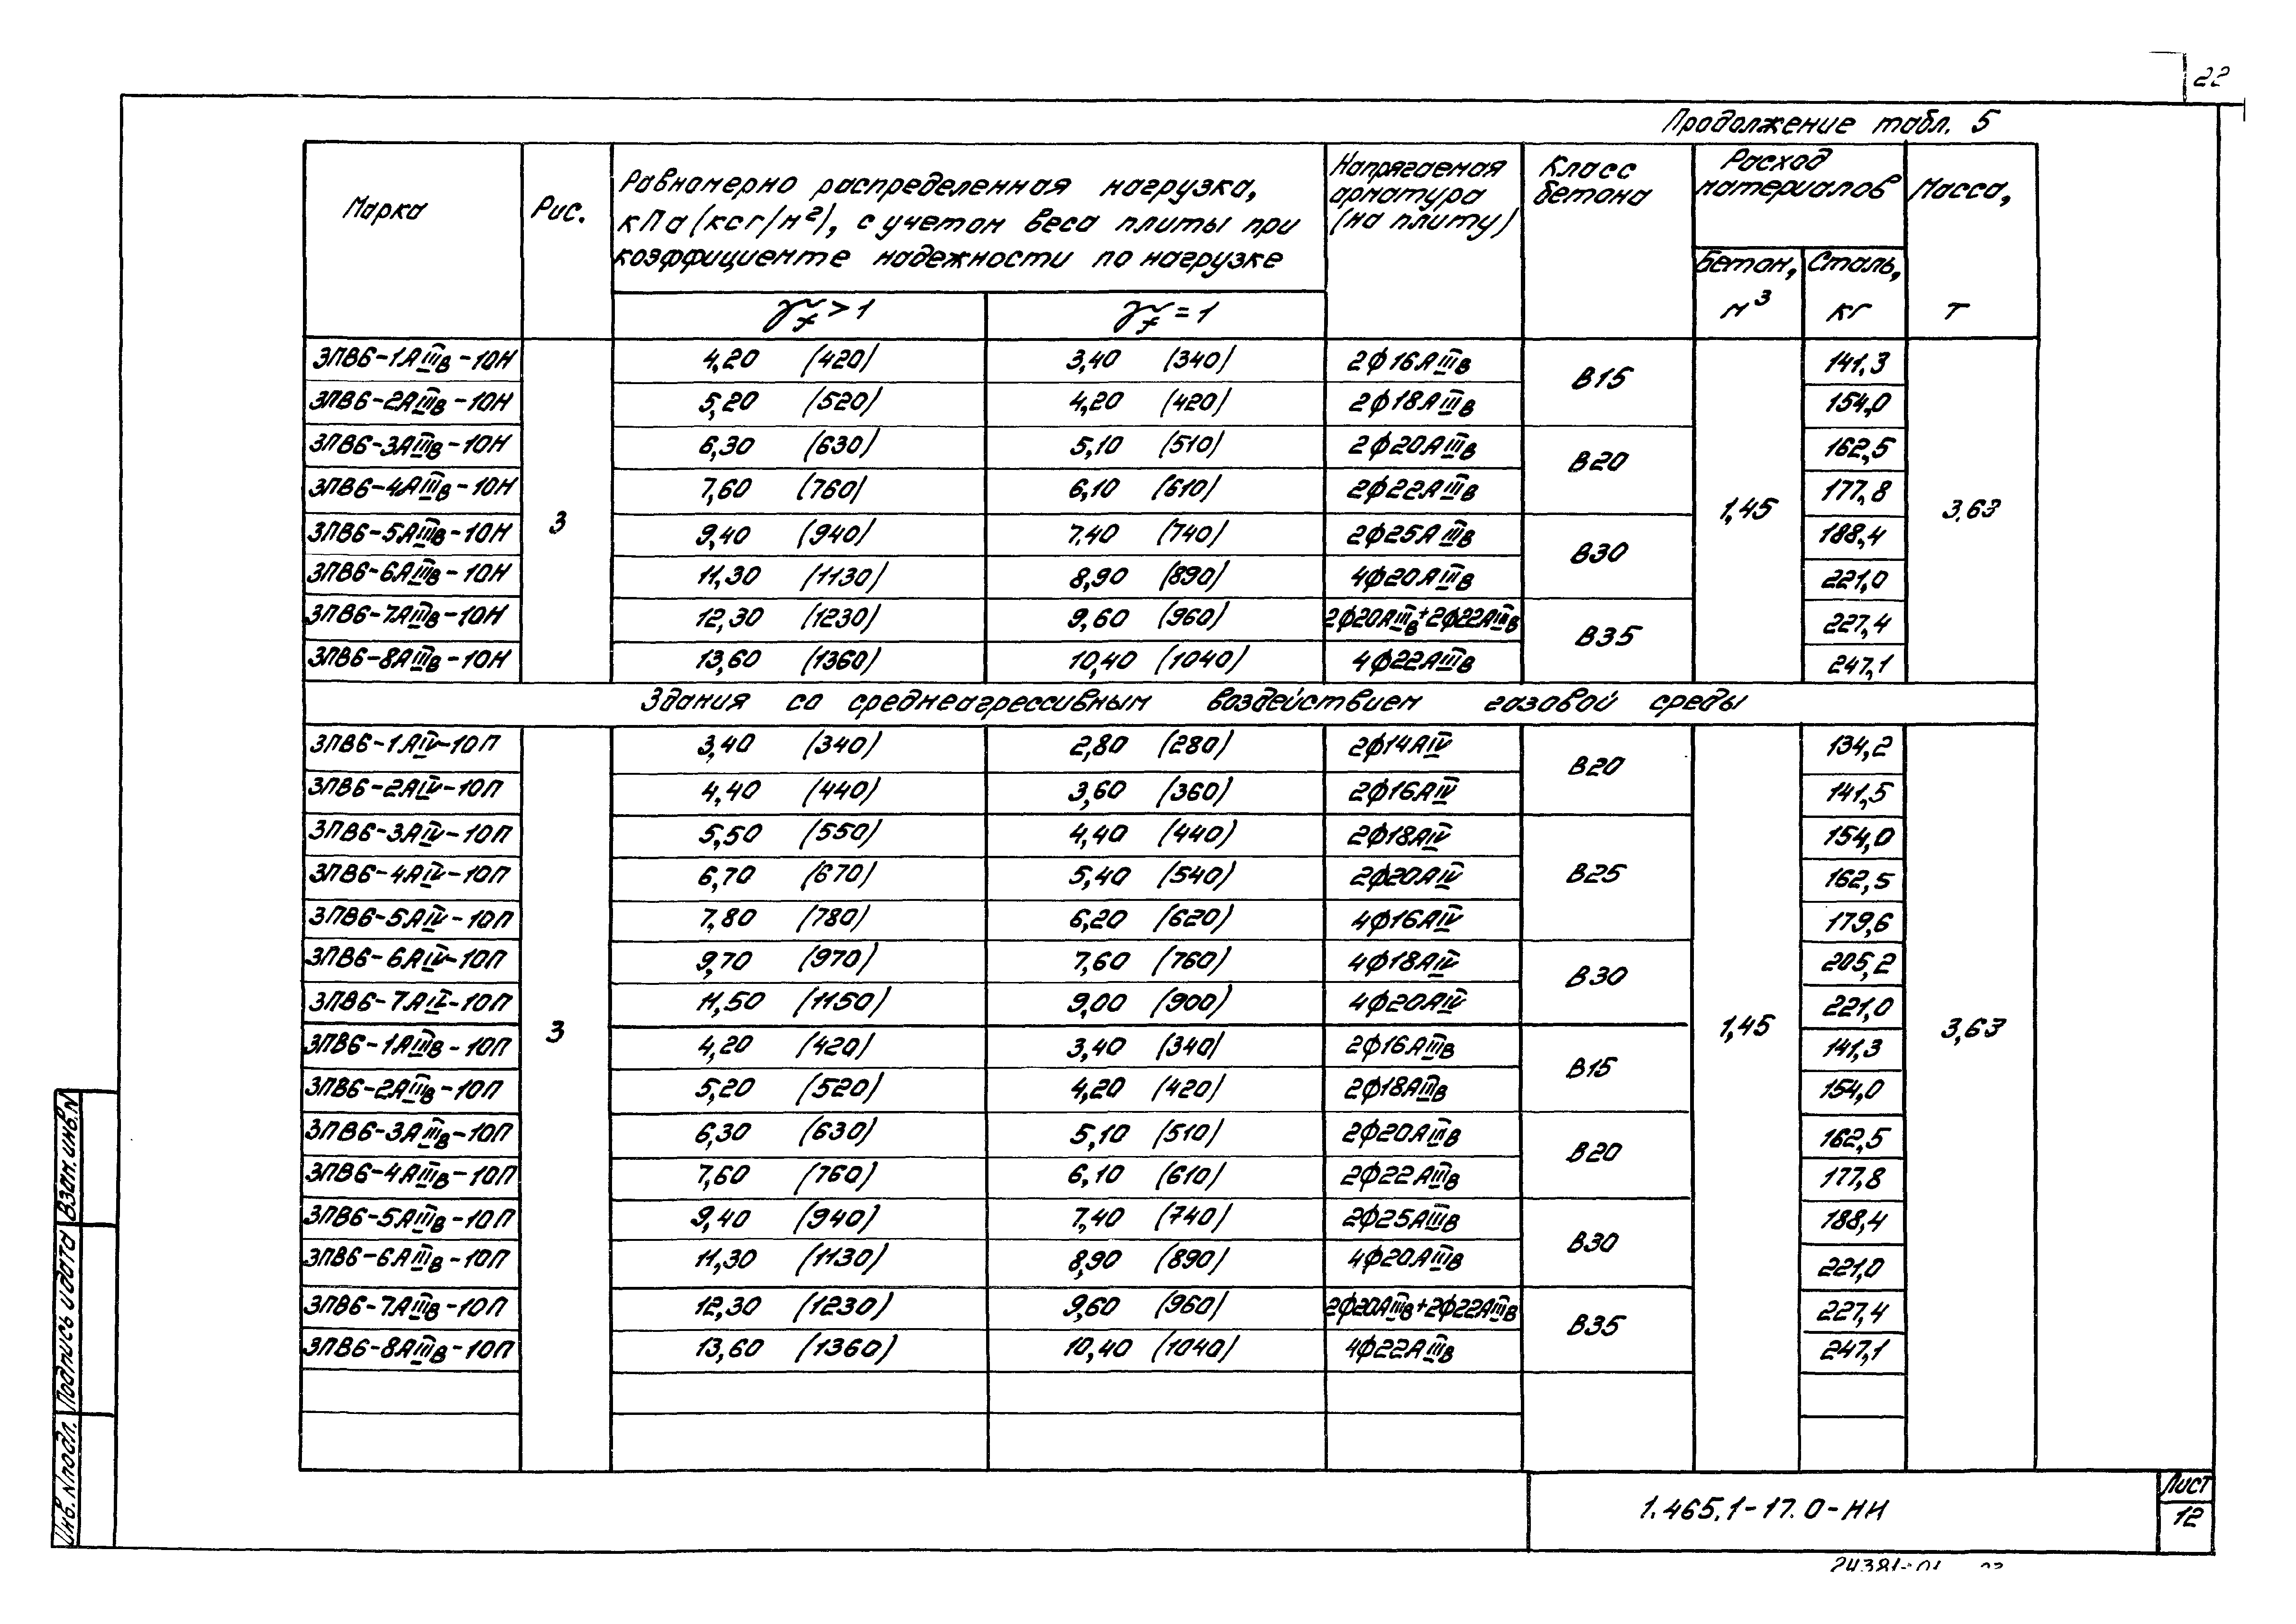 22
Продолжение табл. 5
Марка
Рис.
Равномерно распределенная нагрузка,
кПа (ксг/м²), с учетом веса плиты при
коэффициенте надежности по нагрузке
γf > 1
γf = 1
Напрягаемая
арматура
(на плиту)
Класс
бетона
Расход
материалов
Бетон,
м³
Сталь,
кг
Масса,
т
3ПВ6-1АIIIв-10Н 4,20 (420) 3,40 (340) 2ф16АIIIв В15 141,3
3ПВ6-2АIIIв-10Н 5,20 (520) 4,20 (420) 2ф18АIIIв 154,0
3ПВ6-3АIIIв-10Н 6,30 (630) 5,10 (510) 2ф20АIIIв В20 162,5
3ПВ6-4АIIIв-10Н 7,60 (760) 6,10 (610) 2ф22АIIIв 177,8
3 1,45 3,63
3ПВ6-5АIIIв-10Н 9,40 (940) 7,40 (740) 2ф25АIIIв В30 188,4
3ПВ6-6АIIIв-10Н 11,30 (1130) 8,90 (890) 4ф20АIIIв 221,0
3ПВ6-7АIIIв-10Н 12,30 (1230) 9,60 (960) 2ф20АIIIв+2ф22АIIIв В35 227,4
3ПВ6-8АIIIв-10Н 13,60 (1360) 10,40 (1040) 4ф22АIIIв 247,1
Здания со среднеагрессивным воздействием газовой среды
3ПВ6-1АIV-10П 3,40 (340) 2,80 (280) 2ф14АIV В20 134,2
3ПВ6-2АIV-10П 4,40 (440) 3,60 (360) 2ф16АIV 141,5
3ПВ6-3АIV-10П 5,50 (550) 4,40 (440) 2ф18АIV 154,0
3ПВ6-4АIV-10П 6,70 (670) 5,40 (540) 2ф20АIV В25 162,5
3ПВ6-5АIV-10П 7,80 (780) 6,20 (620) 4ф16АIV 179,6
3ПВ6-6АIV-10П 9,70 (970) 7,60 (760) 4ф18АIV В30 205,2
3ПВ6-7АIV-10П 11,50 (1150) 9,00 (900) 4ф20АIV 221,0
3 1,45 3,63
3ПВ6-1АIIIв-10П 4,20 (420) 3,40 (340) 2ф16АIIIв В15 141,3
3ПВ6-2АIIIв-10П 5,20 (520) 4,20 (420) 2ф18АIIIв 154,0
3ПВ6-3АIIIв-10П 6,30 (630) 5,10 (510) 2ф20АIIIв В20 162,5
3ПВ6-4АIIIв-10П 7,60 (760) 6,10 (610) 2ф22АIIIв 177,8
3ПВ6-5АIIIв-10П 9,40 (940) 7,40 (740) 2ф25АIIIв В30 188,4
3ПВ6-6АIIIв-10П 11,30 (1130) 8,90 (890) 4ф20АIIIв 221,0
3ПВ6-7АIIIв-10П 12,30 (1230) 9,60 (960) 2ф20АIIIв+2ф22АIIIв В35 227,4
3ПВ6-8АIIIв-10П 13,60 (1360) 10,40 (1040) 4ф22АIIIв 247,1
Инв. N подл. Подпись и дата Взам. инв. N
1.465.1-17.0-НИ
Лист
12
24381-01